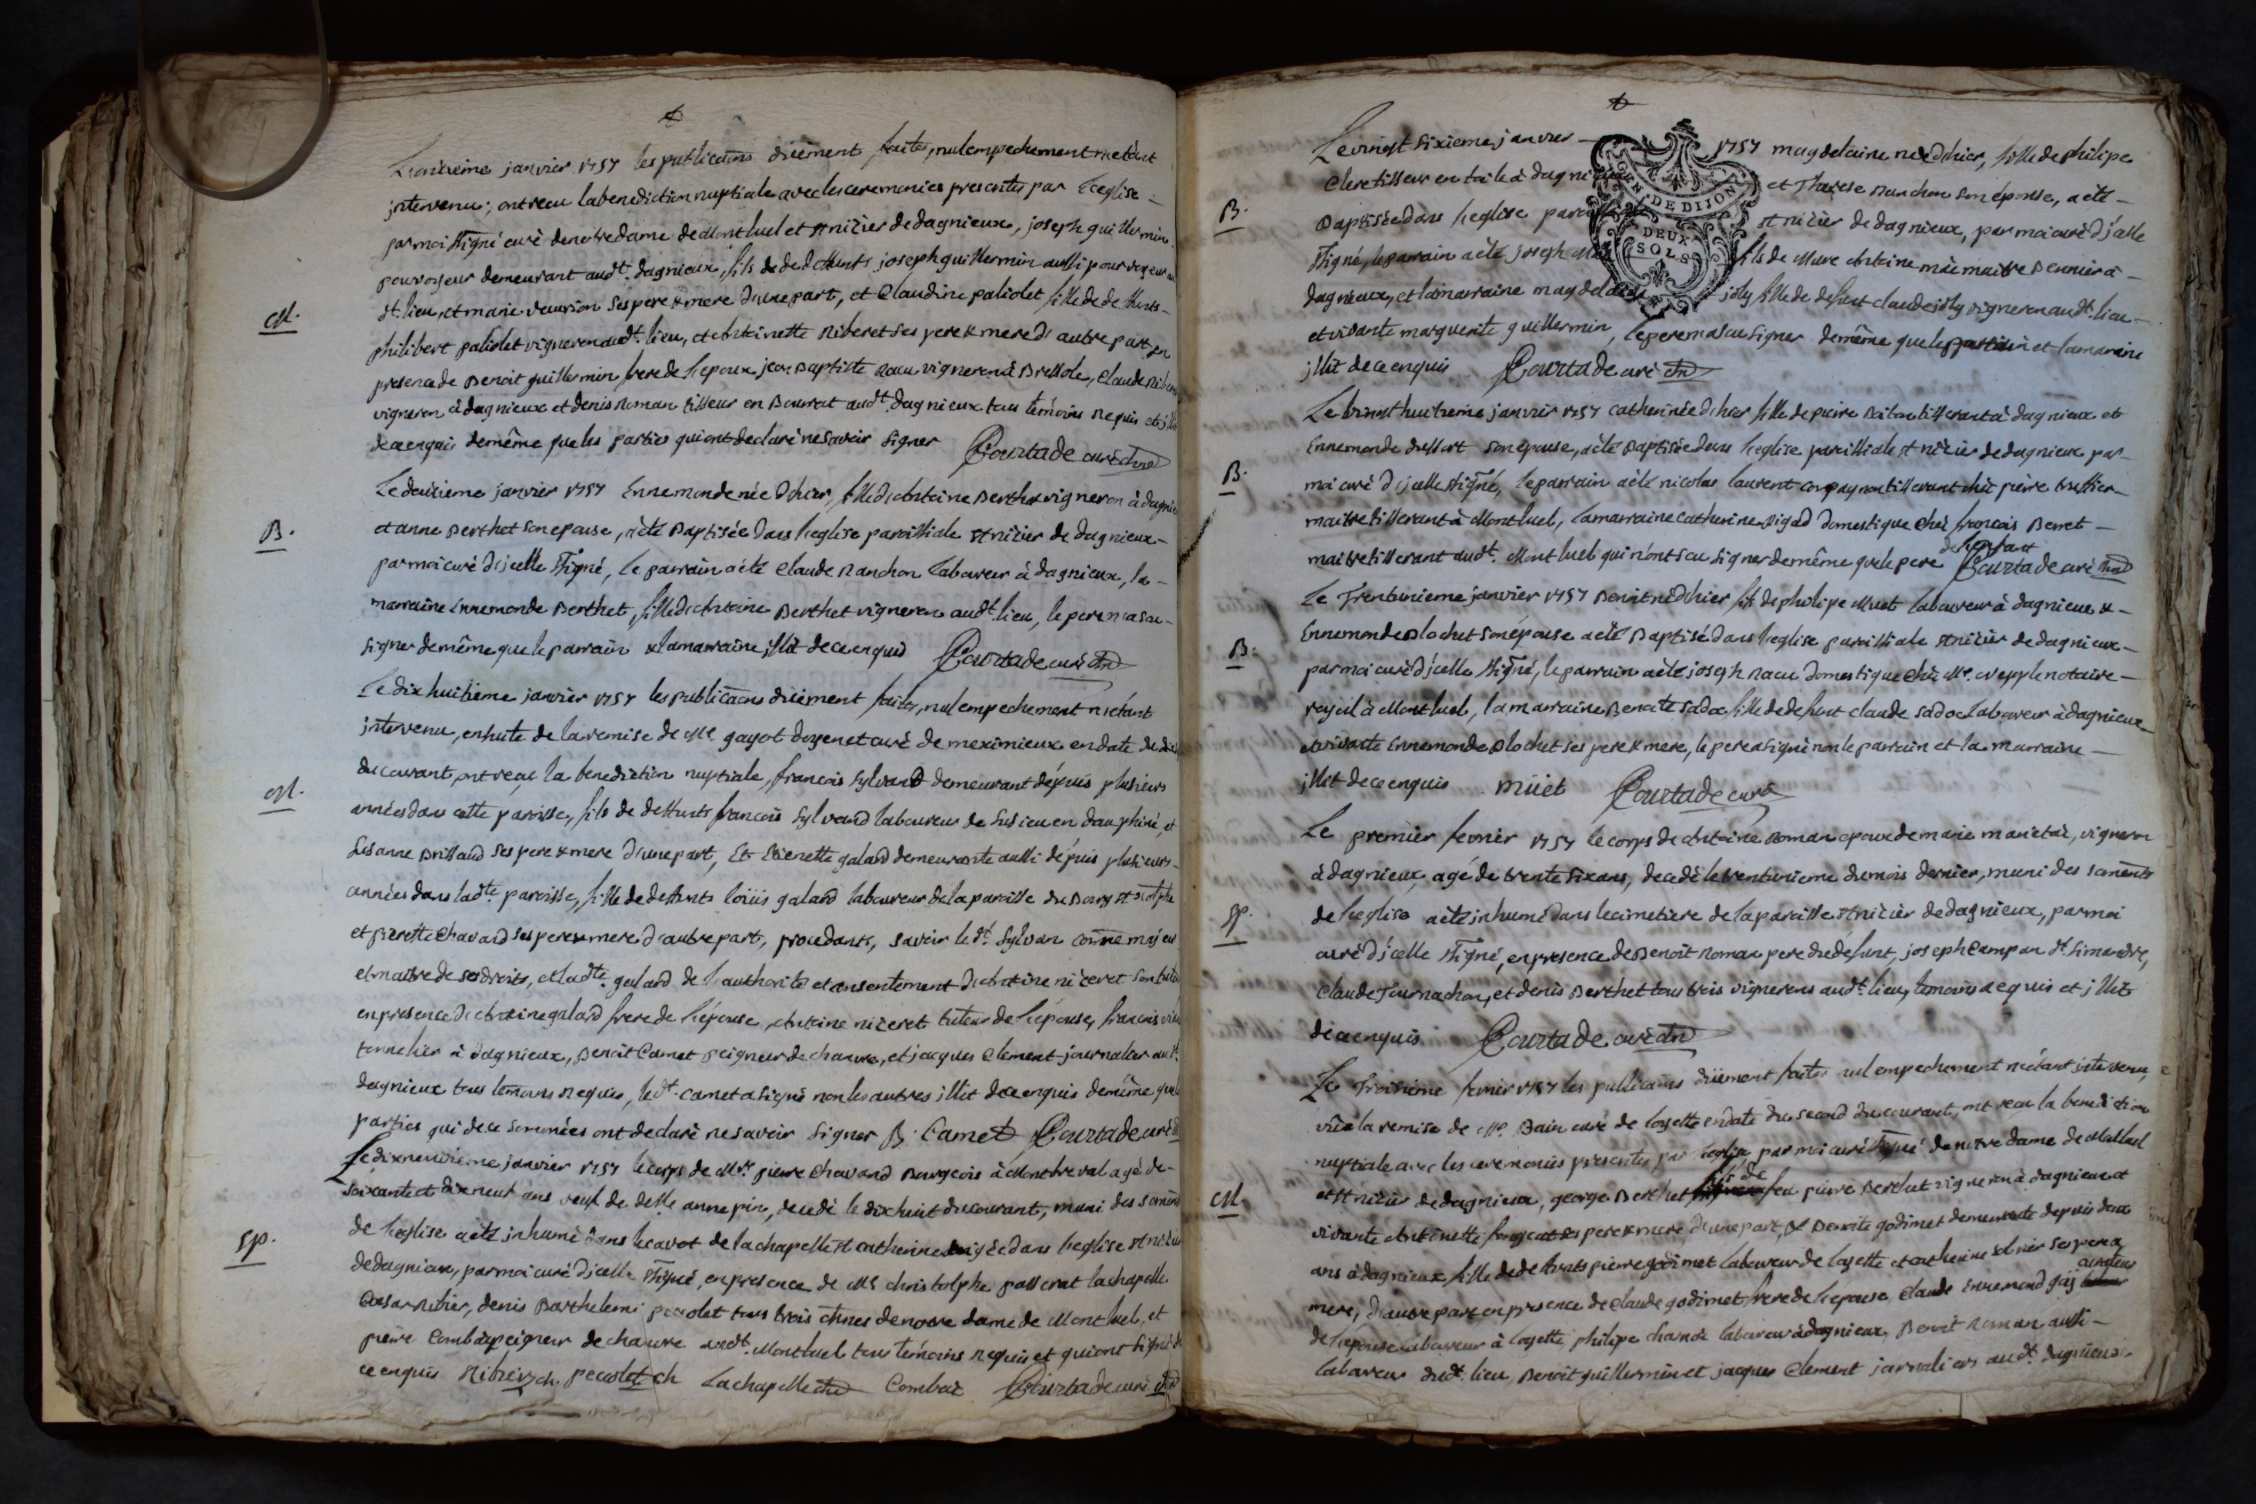 L'onzieme janvier 1757 les publicãons düement faites, nul empechement n'etant
intervenu, ont recu la benediction nuptiale avec les ceremonies prescrites par l'eglise
par moi ssigné curé de notre dame de Montluel et st nizier de dagnieux, joseph guillermin
pourvoyeur demeurant audt. dagnieux, fils de deffunts joseph guillermin aussi pourvoyeur au
dt. lieu, et marie ses pere & mere d'une part, et Claudine paliolet fille de deffunts
M.
philibert paliolet vigneron audt. lieu, et Antoinette Riberet ses pere & mere d'autre part, en
presence de Benoit guillermin frere de l'epoux, jean Baptiste Racu vigneron à Bressole, Claude
vigneron à dagnieux et denis Roman tisseur en Bourrat audt. dagnieux tous temoins requis et illit
de ce enquis de même que les parties qui ont declaré ne savoir signer Courtade curé chne
Le deuxieme janvier 1757 Ennemonde née d'hier, fille d'Antoine Berthet vigneron à dagnieux
B.
et anne Berthet son epouse, a été Baptisée dans l'eglise paroissiale st nizier de dagnieux
par moi curé d'icelle ssigné, le parrain a été Claude Ranchon laboureur à dagnieux, la
marraine Ennemonde Berthet, fille d'Antoine Berthet vigneron audt. lieu, le pere n'a scu
signer de même que le parrain & la marraine illit de ce enquis Courtade curé chne
Le dix huitieme janvier 1757 les publicãons düement faites, nul empechement n'etant
intervenu, ensuite de la remise de Mr gayot doyen et curé de meximieux en date du dix
M.
du courant, ont reçu la benediction nuptiale, francois Sylvand demeurant dépuis plusieurs
années dans cette paroisse, fils de deffunts francois Sylvand laboureur de en dauphiné, et
Lisanne Brissaud ses pere & mere d'une part, Et Etienette galand demeurante aussi dépuis plusieurs
années dans ladte. paroisse, fille de deffunts loüis galand laboureur de la paroisse du Bourg st
et pierrette Chavand ses pere & mere d'autre part, procedants, savoir le dt. Sylvan comme majeur
et maitre de ses droits, et ladte. galand de l'authorité et consentement d'Antoine niceret son tuteur
en presence d'Antoine galand frere de l'épouse, Antoine niceret tuteur de l'épouse, francois
tonnelier à dagnieux, Benoît Camet peigneur de chanvre, et jacques Clement journalier audt.
dagnieux tous temoins requis, le dt. Camet a signé non les autres illit de ce enquis de même que les
parties qui de ce sommées ont declaré ne savoir signer B. Camet Courtade curé
Le dix neuvieme janvier 1757 le corps de Mre. pierre Chavand Bourgeois à Montbreval agé de
soixante et dix neuf ans veuf de delle anne pin, decedé le dix huit du courant, muni des sacremts
Sp.
de l'eglise a été inhumé dans le caveot de la chapelle st catherine erigée dans l'eglise st nizier
de dagnieux, par moi curé d'icelle ssigné, en presence de Mr christolphe passerat lachapelle
Cesar Ribier, denis Barthelemi pecolet tous trois chnes de notre dame de Montluel, et
pierre Combaz peigneur de chanvre audt. Montluel tous temoins requis et qui ont signé de
ce enquis Ribier ch. pecolet ch Lachapelle chne Combaz Courtade curé chne
Le vingt sixieme janvier 1757 magdelaine née d'hier, fille de philipe
Clere tisseur en toile à dagnieux et Therese Ranchon son épouse, a été
B.
Baptisée dans l'eglise paroissiale st nizier de dagnieux, par moi curé d'icelle
ssigné, le parrain a été joseph fils de Antoine maitre Bennier à
dagnieux, et la marraine magdelaine joly fille de defunt claude joly vigneron audt. lieu
et vivante marguerite guillermin, le pere n'a scu signer de même que le parrain et la marraine
illit de ce enquis Courtade curé chne
GEN. DE DIJON
DEUX SOLS
Le vingt huitieme janvier 1757 catherine née d'hier fille de pierre tisserant à dagnieux et
Ennemonde dussort son épouse, a été Baptisée dans l'eglise paroissiale st nizier de dagnieux par
B.
moi curé d'icelle ssigné, le parrain a été nicolas laurent compagnon tisserant chés pierre
maitre tisserant à Montluel, la marraine Catherine Rigod domestique chés francois Berret
maitre tisserant audt. Montluel qui n'ont scu signer de même que le pere de l'enfant Courtade curé chne
Le Trentunieme janvier 1757 Benoit né d'hier fils de philipe Muet laboureur à dagnieux &
Ennemonde Blochet son épouse a été Baptisé dans l'eglise paroissiale st nizier de dagnieux
B.
par moi curé d'icelle ssigné, le parrain a été joseph Racu domestique chés Mr. notaire
royal à Montluel, la marraine Benoite sadoc fille de defunt claude sadoc laboureur à dagnieux
et vivante Ennemonde Blochet ses pere & mere, le pere a signé non le parrain et la marraine
illit de ce enquis müet Courtade curé
Le premier fevrier 1757 le corps de Antoine Roman epoux de marie vigneron
à dagnieux, agé de trente six ans, decedé le trentunieme du mois dernier, muni des sacremts
Sp.
de l'eglise a été inhumé dans le cimetiere de la paroisse st nizier de dagnieux, par moi
curé d'icelle ssigné, en presence de Benoît Roman pere du defunt, joseph Campan dt. simandre,
Claude Tournachon, et denis Berthet tous trois vignerons audt. lieu, temoins requis et illit
de ce enquis Courtade curé chne
Le Troisieme fevrier 1757 les publicãons düement faites nul empechement n'etant intervenu,
vüe la remise de Mr. Bain curé de loyette en date du second du courant, ont recu la benediction
nuptiale avec les ceremonies prescrites par l'eglise, par moi curé ssigné de notre dame de Montluel
et st nizier de dagnieux, george Berthet fils de feu pierre Berthet vigneron à dagnieux et
M.
vivante Antoinette ses pere & mere d'une part, et Benoite godimet demeurante depuis deux
ans à dagnieux, fille de deffunts pierre godimet laboureur de loyette et catherine ses pere &
mere, d'autre part en presence de Claude godimet frere de l'epouse Claude Ennemond curateur
de l'epouse laboureur à loyette, philipe laboureur à dagnieux, Benoit Roman aussi
laboureur dudt. lieu, Benoit guillermin et jacques Clement jornaliers audt. dagnieux.